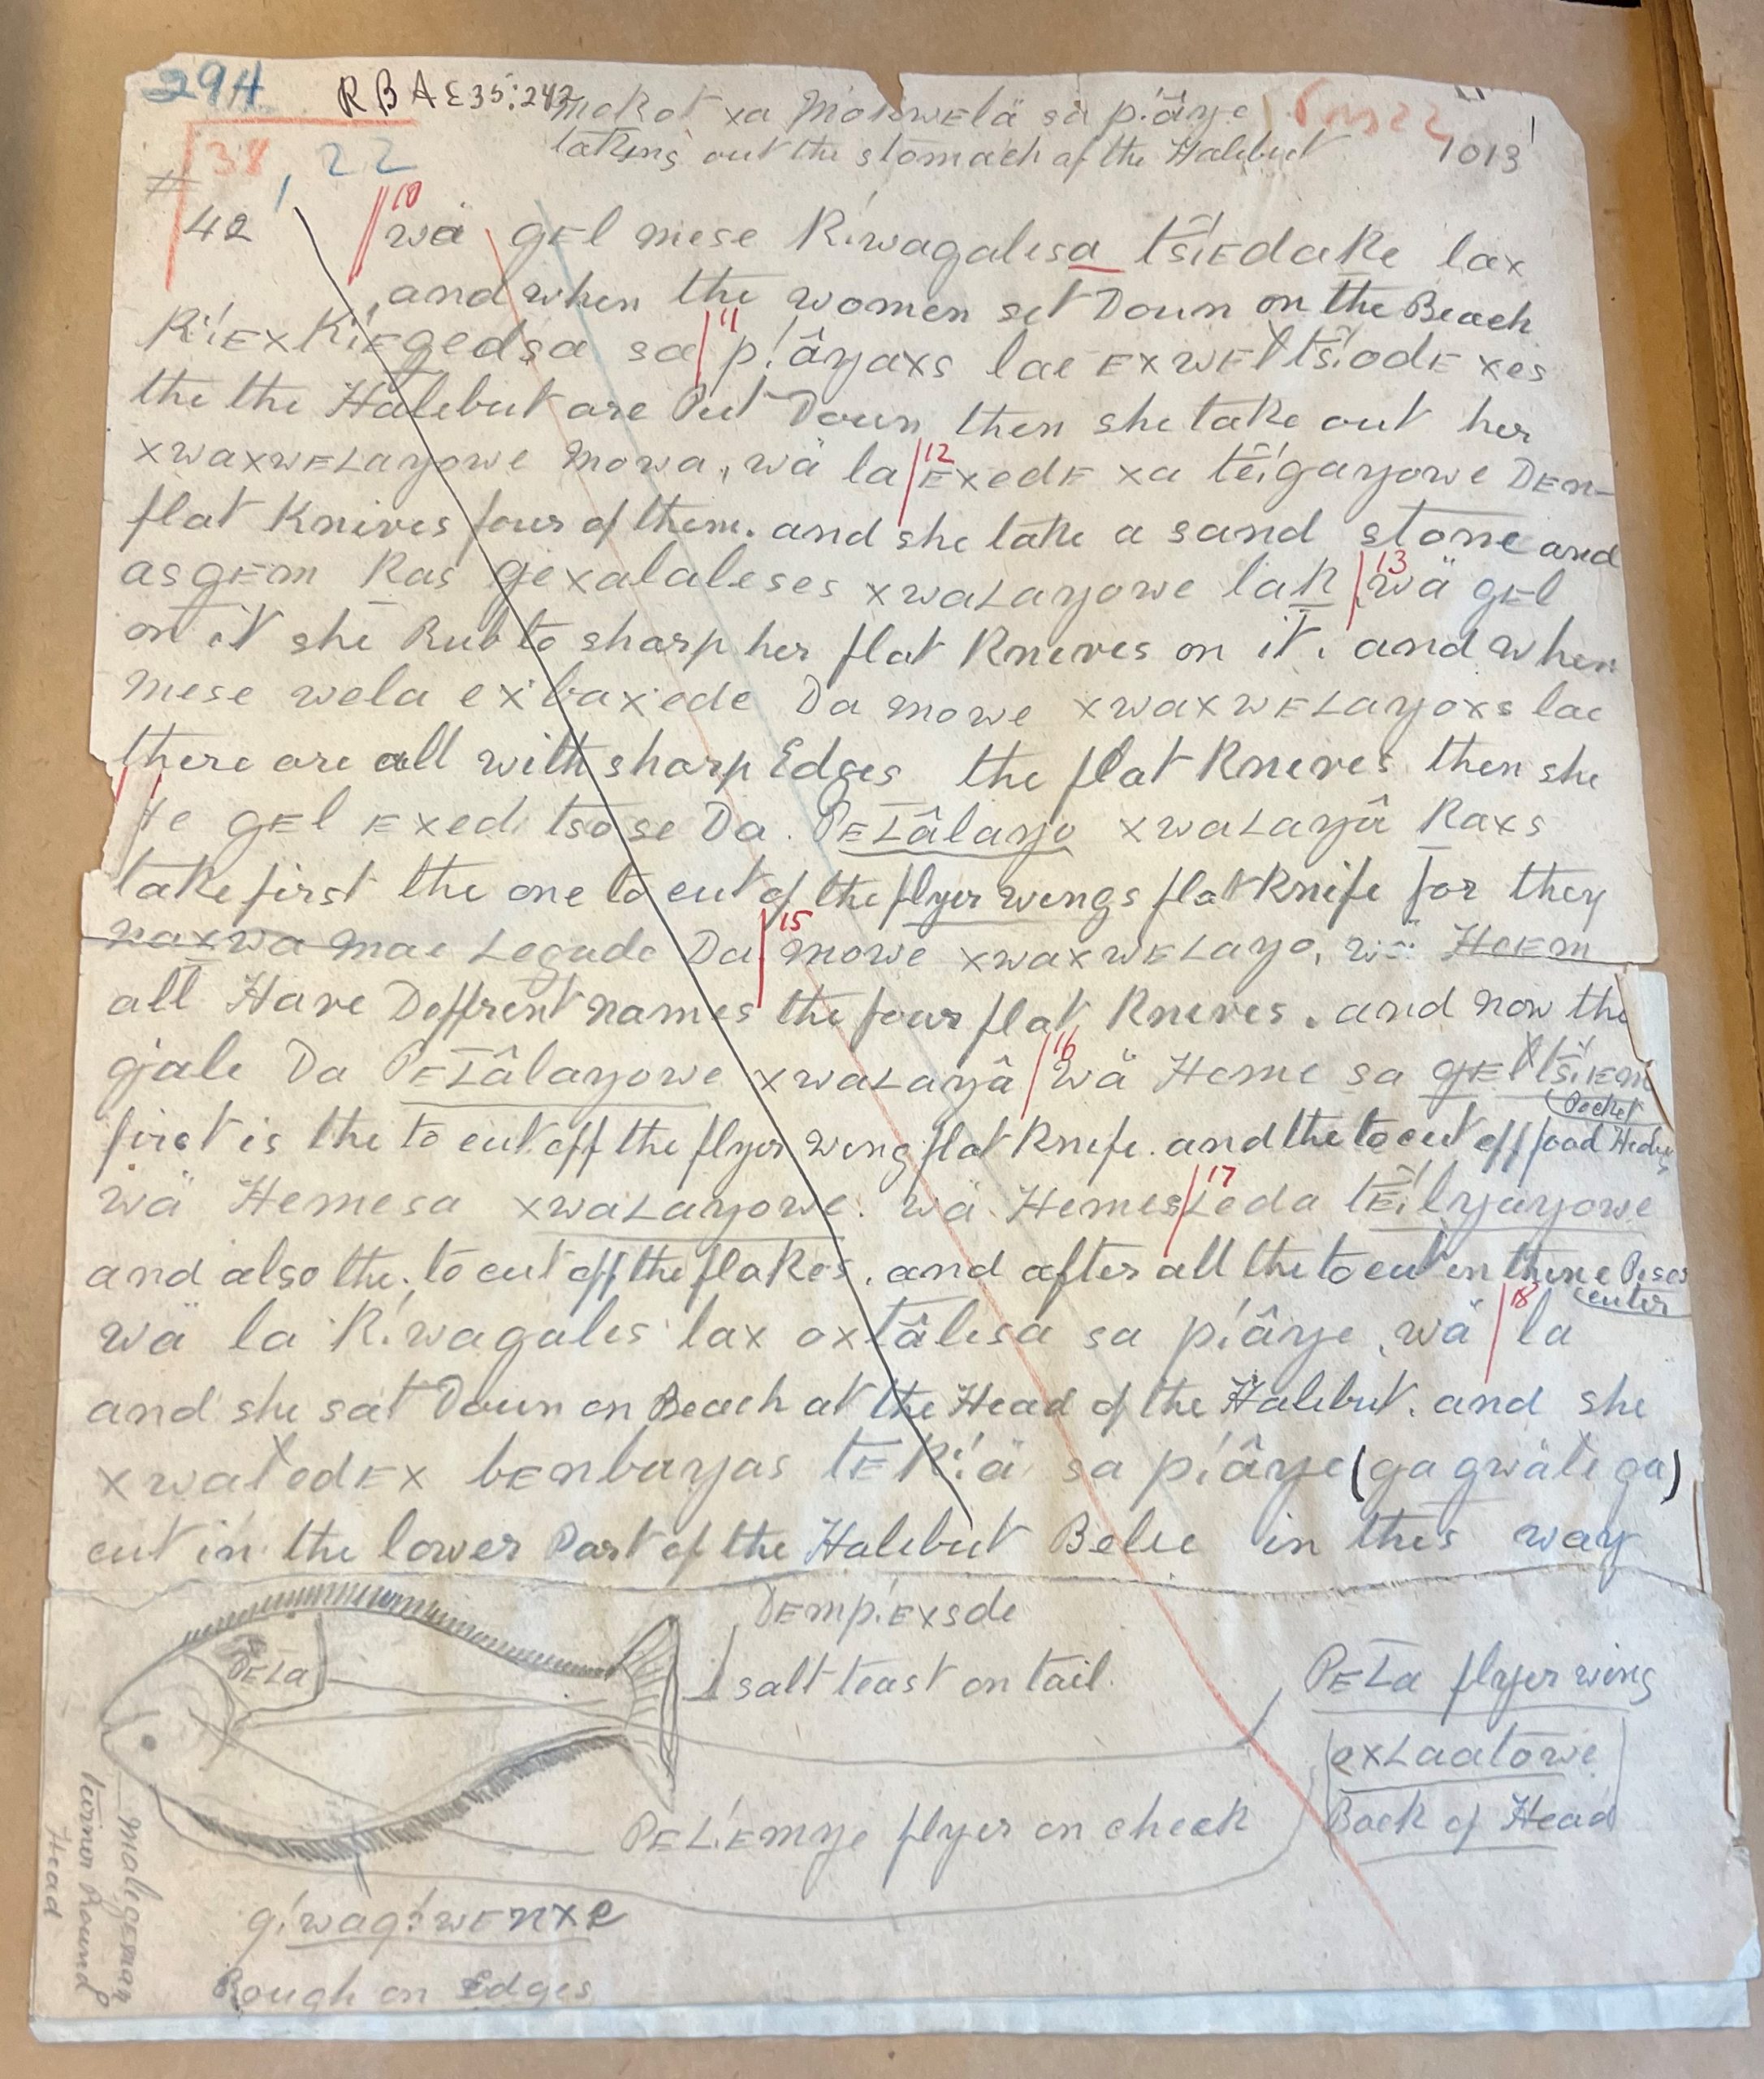 294
RBAE35:242
mokot xa Mokwelä sa p!âye
taking out the stomach of the Halibut
1013
38, 22
#
42
10
wä gEl mese K!wagalesa ts!EdaKe lax
and when the women set Down on the Beach
K!EXK!EgEdsa sa 11 p!âyaxs lae EXWElts!odE xes
the the Halibut are Put Down then she take out her
xwaxwELayowe Mowa, wä la 12 Exede xa tē!gayowe DEn-
flat Knives four of them. and she take a sand stone and
asgEm Kas gexalaleses xwaLayowe laK 13 wä gEl
on it she Rub to sharp her flat Knives on it. and when
mese wela exbaxede Da mowe xwaxwELayoxs lae
there are all with sharp Edges the flat Knives then she
gEl Exed tsose Da PELâlayo xwaLayâ Kaxs
take first the one to cut of the flyer wings flat Knife for they
naxwa mae Legade Da 15 mowe xwaxwELayo, wä HEEm
all Have Deffrent names the four flat Knives. and now the
gale Da PELâlayowe xwaLayâ 16 Wä Heme sa gElts!Em
Pocket
first is the to cut off the flyer wing flat Knife. and the to cut off food
wä Hemesa xwaLayowe. wä Hemes 17 Leda tE!lyayowe
and also the. to cut off the flakes. and after all the to cut in thine Peses
center
wä la K!wagales lax oxtâlisa sa p!âye, wä 18 la
and she sat Down on Beach at the Head of the Halibut. and she
xwatedEx bEnbayas tEK!ä sa p!âye (ga gwäle ga)
cut in the lower Part of the Halibut Belie in this way
DEmp!Exsde
salt teast on tail.
PELa
PELa flyer wing
oxLaatowe
Back of Head
PEL!Emye flyer on cheek
g!wag!wENxe
Rough on Edges
malegEman
turnor Round
Head